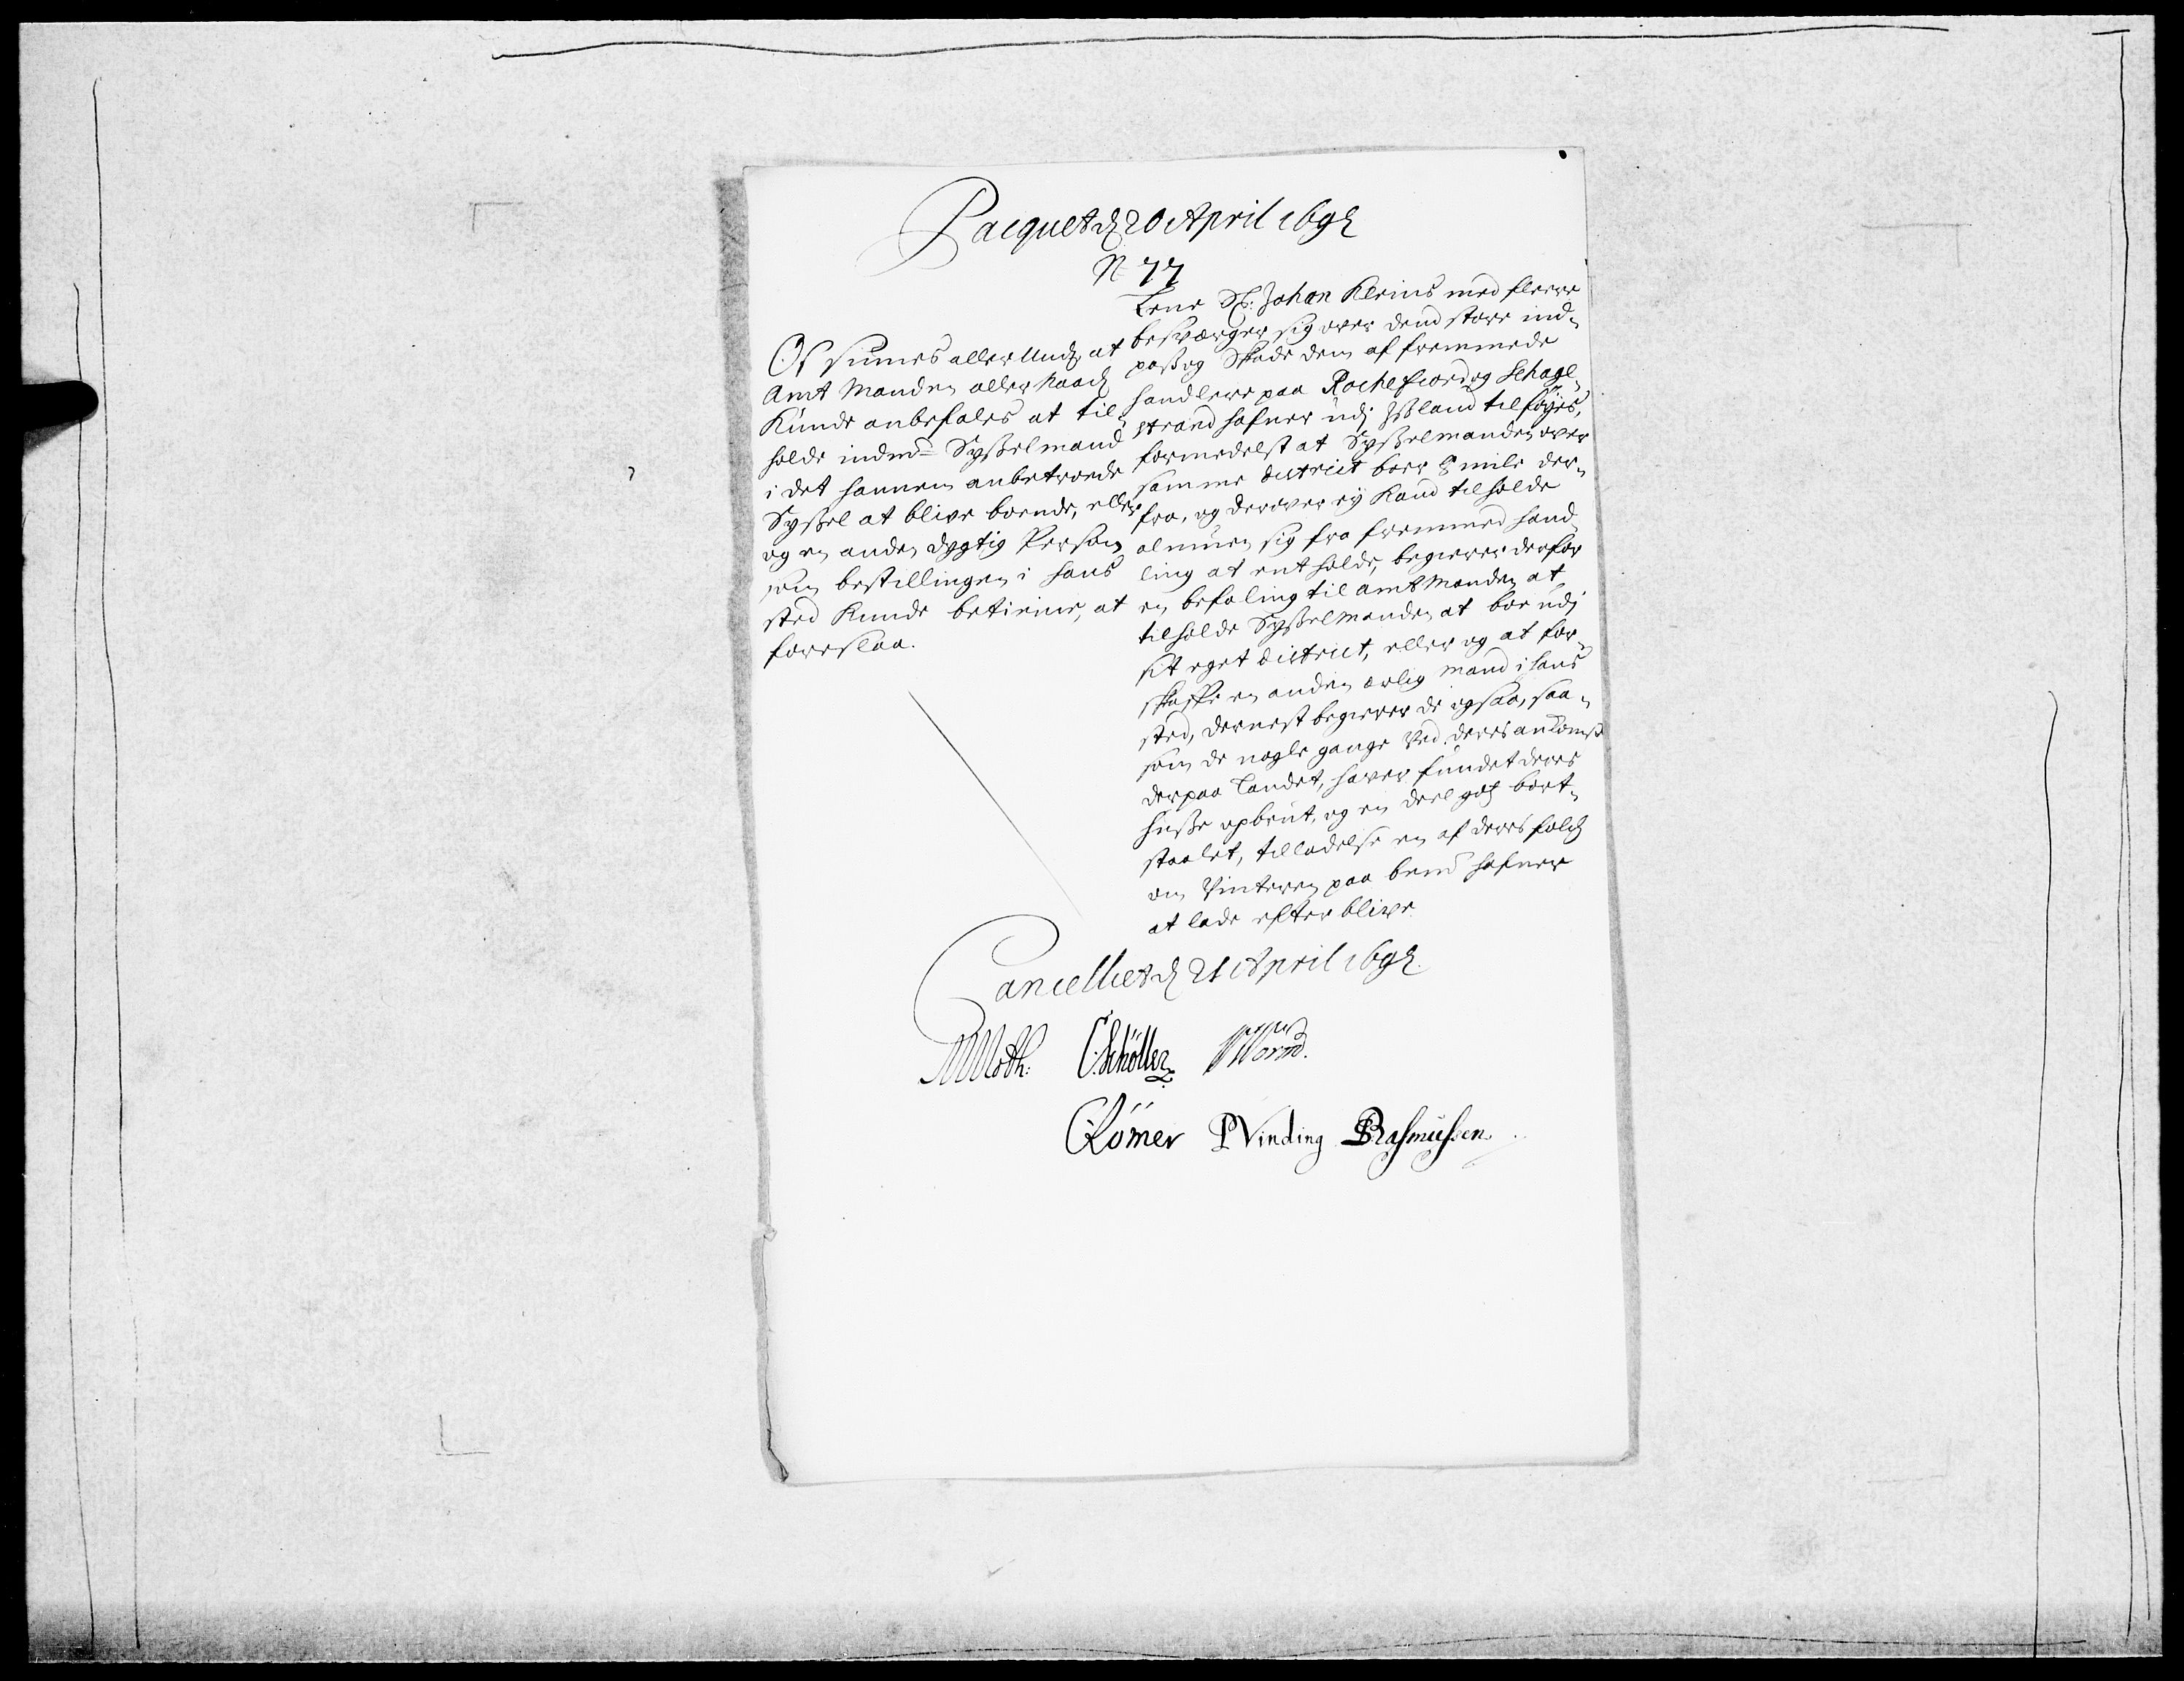 Pacquet d 20 April 1692
N 77
Lene Sl: Johan Kleins med fleere
besværger sig over dend store ind-
pas og Skade dem af fremmede
handlere paa Rochefiord og Schage-
strand hafner udj Ißland tilföyes,
formedelst at Sysselmanden over
samme district boer 8 mile der-
fra, og derover ey Kand tilholde
almuen sig fra fremmed hand-
ling at entholde, begierer derfor
en befaling til amtmanden at
tilholde Sysselmanden at boe udj
sit eget district, eller og at for-
skaffe en anden ærlig mand i hans
sted, dernest begierer de ogsaa, saa-
som de nogle gange ved deres ankomst
der paa Landet, haver fundet deres
huße opbrut, og en deel gods bort-
staalet, tilladelse en af deres folch
om Vinteren paa bemte hafner
at lade efter blive.
Os siunes allerUnd: at
Amt Manden aller naad
Kunde anbefales at til-
holde indbemte Sysselmand
i det hannem anbetroede
Syssel at blive boende, eller
og en anden dygtig Person
som bestillingen i hans
sted Kunde betiene, at
foreslaa.
Cancelliet d 21 April 1692.
MMoth: C:Schöller WWorm.
CRömer PVinding BRasmussen.